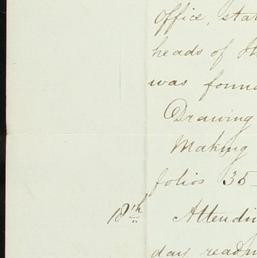 Office, stat
heads of
was found
Drawing
Making
folios 35
18th Attendi
day